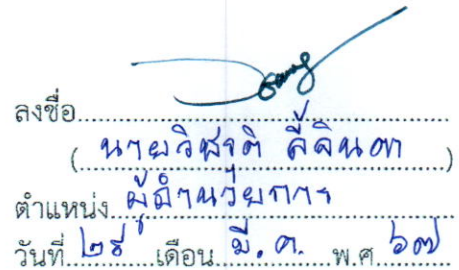 ลงชื่อ
(นาย)
ตำแหน่ง ผู้อำนวยการ
วันที่ ๒๘ เดือน มี.ค. พ.ศ ๖๗